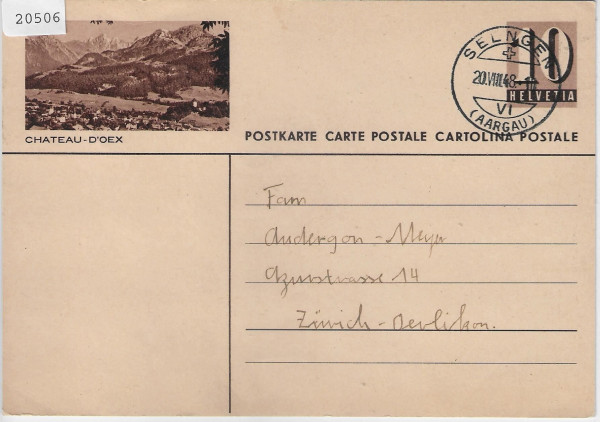 20506
CHATEAU-D'OEX
10
HELVETIA
SELNGEN
20.VIII.48.
VI
(AARGAU)
POSTKARTE CARTE POSTALE CARTOLINA POSTALE
Fam
Anderegon-Meyer
strasse 14
Zürich-Oerlikon.